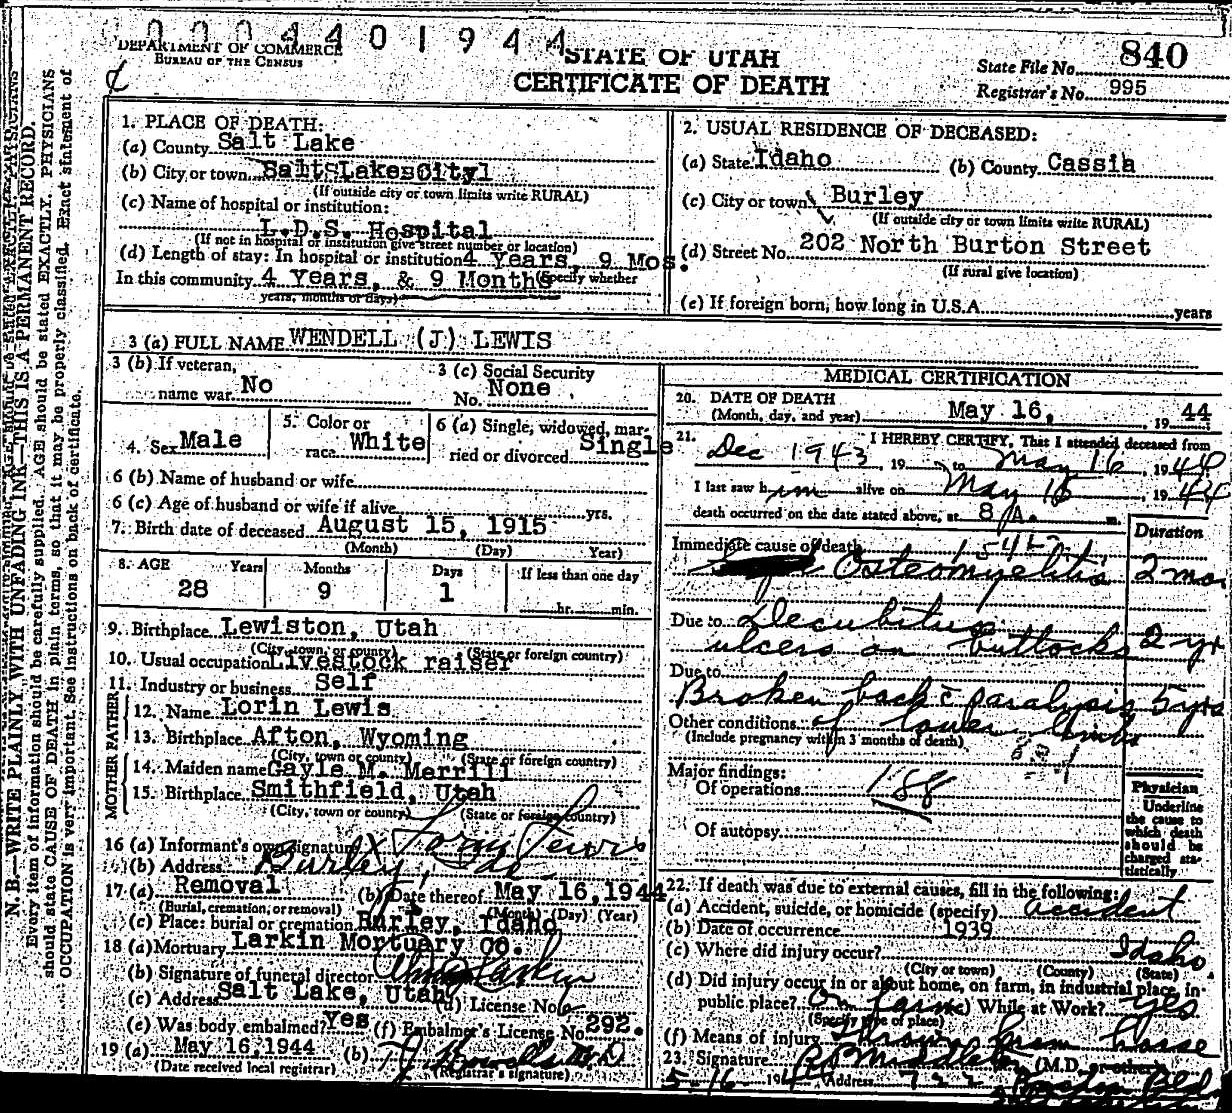 0004401944
DEPARTMENT OF COMMERCE
BUREAU OF THE CENSUS
STATE OF UTAH
CERTIFICATE OF DEATH
State File No. 840
Registrar's No. 995
N. B.—WRITE PLAINLY WITH UNFADING INK—THIS IS A PERMANENT RECORD.
Every item of information should be carefully supplied. AGE should be stated EXACTLY. PHYSICIANS
should state CAUSE OF DEATH in plain terms, so that it may be properly classified. Exact statement of
OCCUPATION is very important. See instructions on back of certificate.
1. PLACE OF DEATH:
(a) County Salt Lake
(b) City or town Salt Lake City
(If outside city or town limits write RURAL)
(c) Name of hospital or institution:
L.D.S. Hospital
(If not in hospital or institution give street number or location)
(d) Length of stay: In hospital or institution 4 Years, 9 Mos.
In this community 4 Years, & 9 Months (Specify whether
years, months or days)
2. USUAL RESIDENCE OF DECEASED:
(a) State Idaho (b) County Cassia
(c) City or town Burley
(If outside city or town limits write RURAL)
(d) Street No. 202 North Burton Street
(If rural give location)
(e) If foreign born, how long in U.S.A. years
3 (a) FULL NAME WENDELL (J) LEWIS
3 (b) If veteran,
name war No
3 (c) Social Security
No. None
4. Sex Male
5. Color or
race White
6 (a) Single, widowed, mar-
ried or divorced Single
6 (b) Name of husband or wife
6 (c) Age of husband or wife if alive yrs.
7. Birth date of deceased August 15, 1915
(Month) (Day) Year)
8. AGE Years Months Days If less than one day
28 9 1 hr. min.
9. Birthplace Lewiston, Utah
(City, town, or county) (State or foreign country)
10. Usual occupation Livestock raiser
11. Industry or business Self
FATHER
12. Name Lorin Lewis
13. Birthplace Afton, Wyoming
(City, town or county) (State or foreign country)
MOTHER
14. Maiden name Gayle M. Merrill
15. Birthplace Smithfield, Utah
(City, town or county) (State or foreign country)
16 (a) Informant's own signature X Lorin Lewis
(b) Address Burley, Ida
17 (a) Removal (b) Date thereof May 16, 1944
(Burial, cremation, or removal) (Month) (Day) (Year)
(c) Place: burial or cremation Burley, Idaho
18 (a) Mortuary Larkin Mortuary Co.
(b) Signature of funeral director Larkin
(c) Address Salt Lake, Utah (d) License No. 6
(e) Was body embalmed? Yes (f) Embalmer's License No. 292.
19 (a) May 16, 1944 (b) M D
(Date received local registrar) (Registrar's signature)
MEDICAL CERTIFICATION
20. DATE OF DEATH
(Month, day, and year) May 16, 1944
21. I HEREBY CERTIFY, That I attended deceased from
Dec 1943, 19 to May 16, 1944
I last saw him alive on May 15, 1944
death occurred on the date stated above, at 8 A. m.
Duration
Immediate cause of death
Osteomyelitis 2 mos
Due to Decubitus
ulcers on buttocks 2 yrs
Due to
Broken back c̄ paralysis 5 yrs
Other conditions of lower limbs
(Include pregnancy within 3 months of death)
Major findings:
Of operations 188
Of autopsy
Physician
Underline
the cause to
which death
should be
charged sta-
tistically
22. If death was due to external causes, fill in the following:
(a) Accident, suicide, or homicide (specify) accident
(b) Date of occurrence 1939
(c) Where did injury occur? Idaho
(City or town) (County) (State)
(d) Did injury occur in or about home, on farm, in industrial place, in
public place? On farm (e) While at Work? yes
(Specify type of place)
(f) Means of injury Thrown from horse
23. Signature Middleton (M.D. or other)
5-16-1944 Address 722 Boston Bld